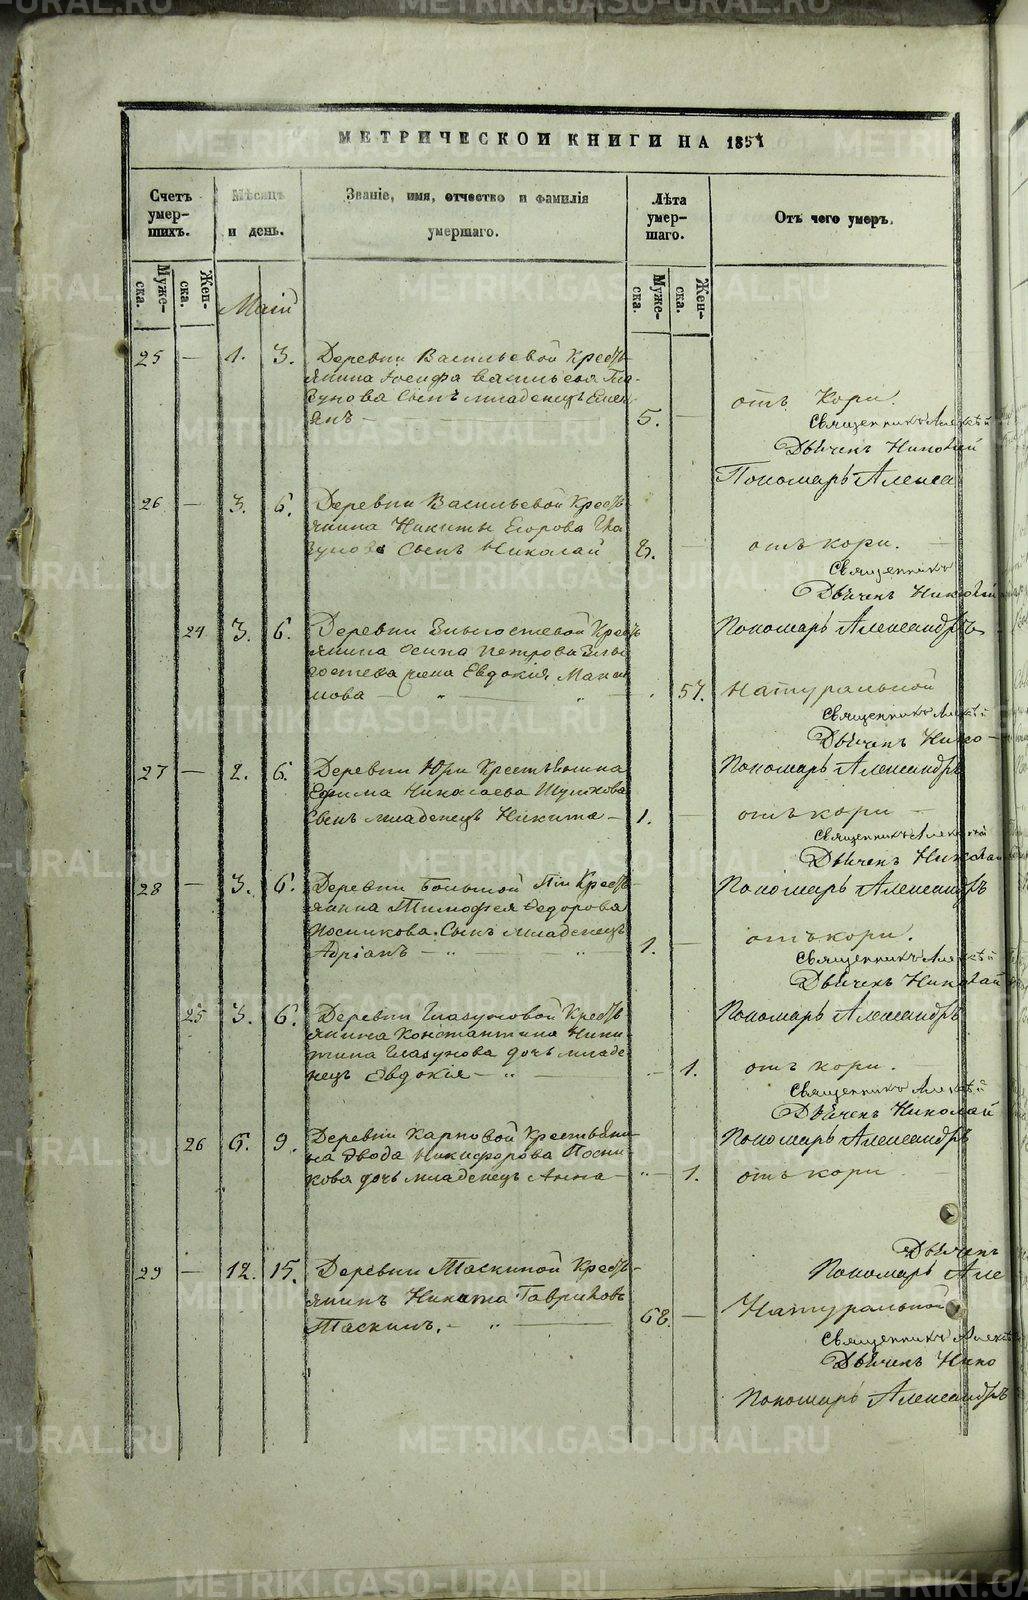 МЕТРИЧЕСКОЙ КНИГИ НА 1851
Счетъ умер-шихъ.
Мѣсяцъ и день.
Званіе, имя, отчество и фамилія умершаго.
Лѣта умер-шаго.
Отъ чего умеръ.
Муже-ска.
Жен-ска.
Маій
Муже-ска.
Жен-ска.
25 — 1. 3. Деревни Васильевой Кресть-
янина Іосифа Васильева Гла-
зунова сынъ младенецъ
5. — отъ кори.
Священникъ Алексѣй
Дьяченъ Николай
Пономарь Алекса
26 — 3. 6. Деревни Васильевой Кресть-
янина Никиты Егорова Гла
зунова Сынъ Николай 8. — отъ кори. —
Священникъ
Дьяченъ Николай
24 3. 6. Деревни Кресть
янина Осипа Петрова
жена Евдокія Макси
мова — „ — „ 57. Натуральной
Священникъ Алексѣй
Дьяченъ Нико-
Пономарь Александръ
27 — 2. 6. Деревни Юри Крестьянина
Ефима Николаева
Сынъ младенецъ Никита — 1. — отъ кори —
Священникъ Алексѣй
Дьяченъ Николай
Пономарь Александръ
28 — 3. 6. Деревни Большой Кресть
янина Тимофея Федорова
Посникова. Сынъ младенецъ
Адріанъ — „ — „ — 1. — отъ кори.
Священникъ Алексѣй
Дьяченъ Николай
Пономарь Александръ
25 3. 6. Деревни Глазуновой Кресть
янина Константина Ники-
тина Глазунова дочь младе
нецъ Евдокія — „ — 1. отъ кори. —
Священникъ Алексѣй
Дьяченъ Николай
Пономарь Александръ
26 6. 9. Деревни Карповой Крестьяни-
на Никифорова Посни-
кова дочь младенецъ Анна — „ — 1. отъ кори
Дьяченъ
Пономарь Але
29 — 12. 15. Деревни Таскиной Кресть-
янинъ Никита Гавриловъ
Таскинъ. — „ — 68. — Натуральной
Священникъ Алексѣ
Дьяченъ Нико
Пономарь Александръ
METRIKI.GASO-URAL.RU